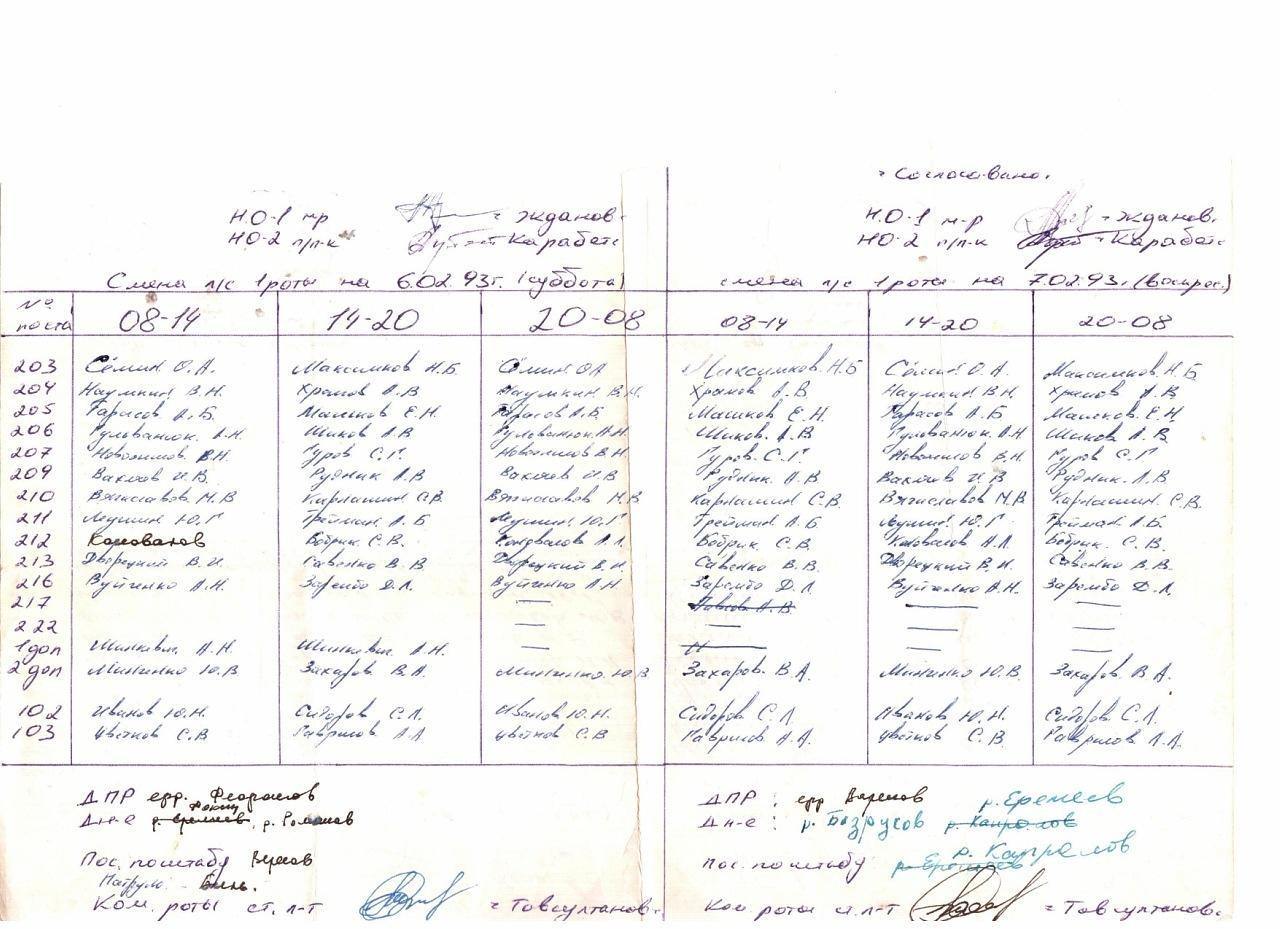 "Согласовано"
Н.О-1 м-р "Жданов" Н.О-1 м-р "Жданов"
НО-2 п/п-к "Карабет" НО-2 п/п-к "Карабет"
Смена л/с 1 роты на 6.02.93г. (суббота) смена л/с 1 роты на 7.02.93г. (воскрес.)
№ поста 08-14 14-20 20-08 08-14 14-20 20-08
203 Сёмин О.А. Максимков Н.Б Сёмин О.А Максимков Н.Б Сёмин О.А. Максимков Н.Б
204 Наумкин В.Н. Храмов А.В Наумкин В.Н Храмов А.В Наумкин В.Н Храмов А.В
205 Тарасов А.Б Машков Е.Н. Тарасов А.Б. Машков Е.Н. Тарасов А.Б Машков Е.Н
206 Гулованюк А.Н. Шиков А.В Гулованюк А.Н. Шиков А.В Гулованюк А.Н Шиков А.В.
207 В.Н. Гуров С.Г. В.Н Гуров С.Г. В.Н Гуров С.Г
209 И.В Рудник А.В И.В Рудник А.В И.В Рудник А.В
210 Вячиславов М.В Карпашин С.В Вячиславов М.В Карпашин С.В. Вячиславов М.В Карпашин С.В.
211 Ю.Г Грейман А.Б Ю.Г Грейман А.Б Ю.Г Грейман А.Б.
212 Коновалов Бобрик С.В. Коновалов А.Л Бобрик С.В. Коновалов А.Л Бобрик С.В.
213 Дворецкий В.И. Савенко В.В Дворецкий В.И Савенко В.В. Дворецкий В.И Савенко В.В
216 Вуйченко А.Н Зарембо Д.Л. Вуйченко А.Н Зарембо Д.Л Вуйченко А.Н. Зарембо Д.Л
217 — Павлов А.В — —
222 — — — —
1 доп Шинкевич А.Н. Шинкевич А.Н. — — — —
2 доп Минченко Ю.В Захаров В.А. Минченко Ю.В Захаров. В.А. Минченко Ю.В. Захаров В.А.
102 Иванов Ю.Н. Сидоров С.Л. Иванов Ю.Н. Сидоров С.Л. Иванов Ю.Н. Сидоров С.Л.
103 Цветков С.В Гаврилов А.А Цветков С.В Гаврилов А.А. Цветков С.В. Гаврилов А.А
ДПР ефр. ДПР: ефр р. Еремеев
Дн-е р. Еремеев, р. Романов Дн-е: р. Безрусов р. Капралов
Пос. по штабу пос. по штабу р. Еремеев р. Капралов
Патруль
Ком. роты ст. л-т "Товсултанов" Ком. роты ст. л-т "Товсултанов"